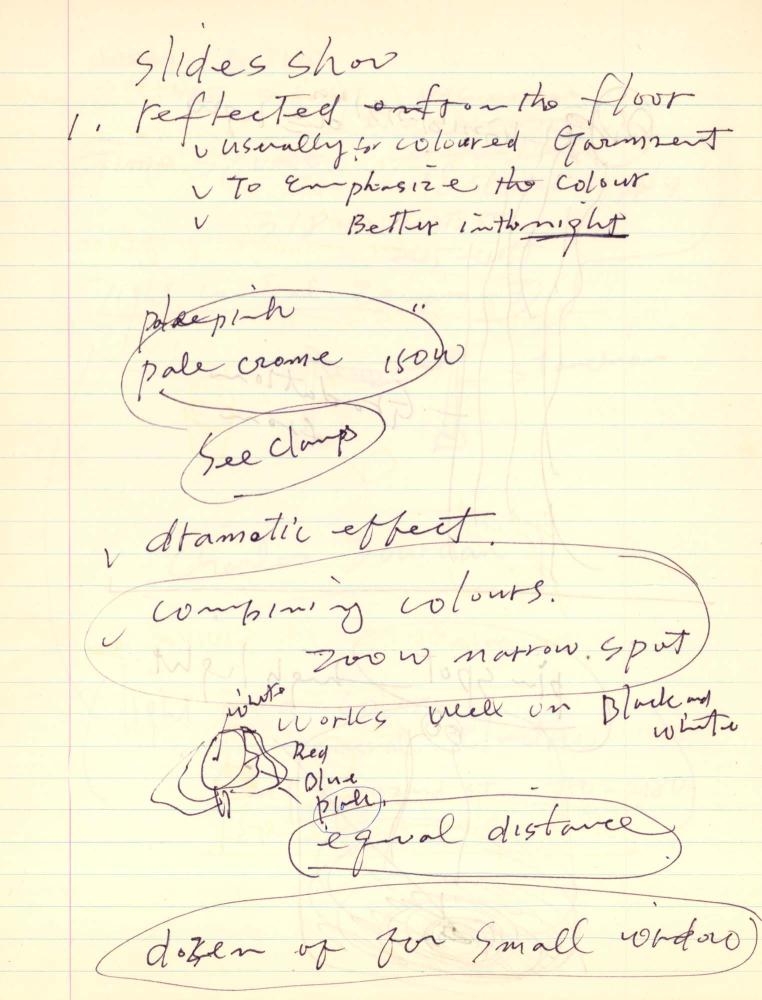 slides show
1. reflected from the floor
v usually for coloured Garment
v To Emphasize the colour
v Better in the night
pale pink "
pale crome 150W
See Clamps
v dramatic effect.
v compining colours.
200W narrow. spot
works well on Black and white
white
Red
Blue
pink.
equal distance
dozen of for small window